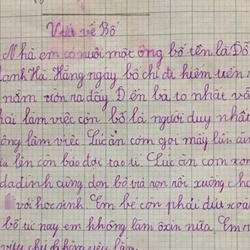 Viết về Bố
Nhà em có nuôi một ông bố tên là Đỗ
anh Hà. Hằng ngày bố chỉ đi kiếm tiền
nằm ườn ra đấy. Dến bà to nhất vẫ
hải làm việc còn bố là người duy nhất
ông làm việc. Lúc ăn cơm gọi mấy lần
lên còn bảo đợi tao tí. Lúc ăn cơm xon
dadình cùng dọn bố và cơm rồi xuống
với học sinh. Em bé còn phải đút
bố từ nay em không làm ăn nữa. Em
yêu